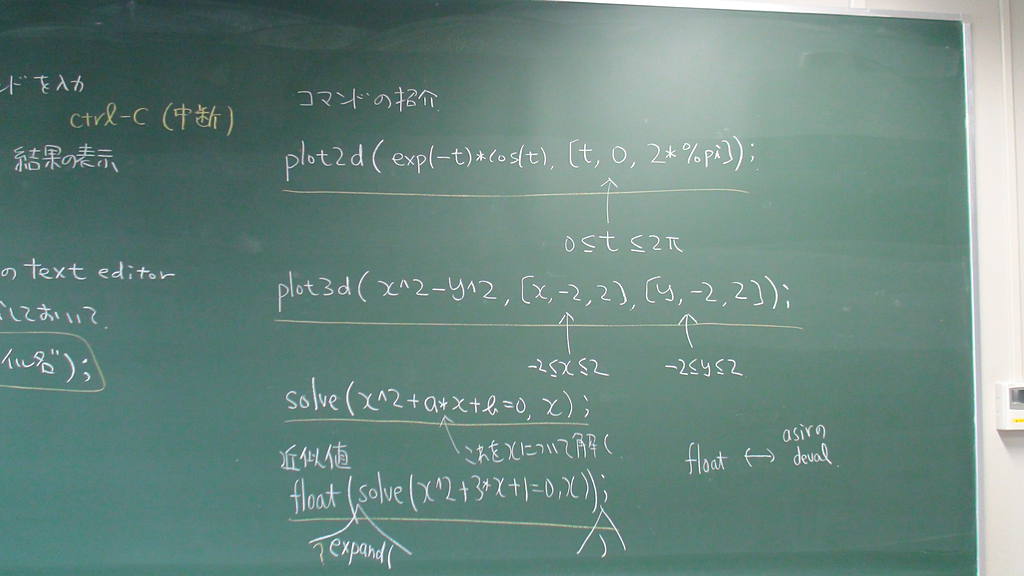 ンドを入力
ctrl-C (中断)
結果の表示
の text editor
しておいて
イル名");
コマンドの紹介
plot2d(exp(-t)*cos(t), [t, 0, 2*%pi]);
0≤t≤2π
plot3d(x^2-y^2, [x,-2,2], [y,-2,2]);
-2≤x≤2
-2≤y≤2
solve(x^2+a*x+b=0, x);
これをxについて解く
近似値
float(solve(x^2+3*x+1=0,x));
expand(
)
float ↔ asirの
deval.